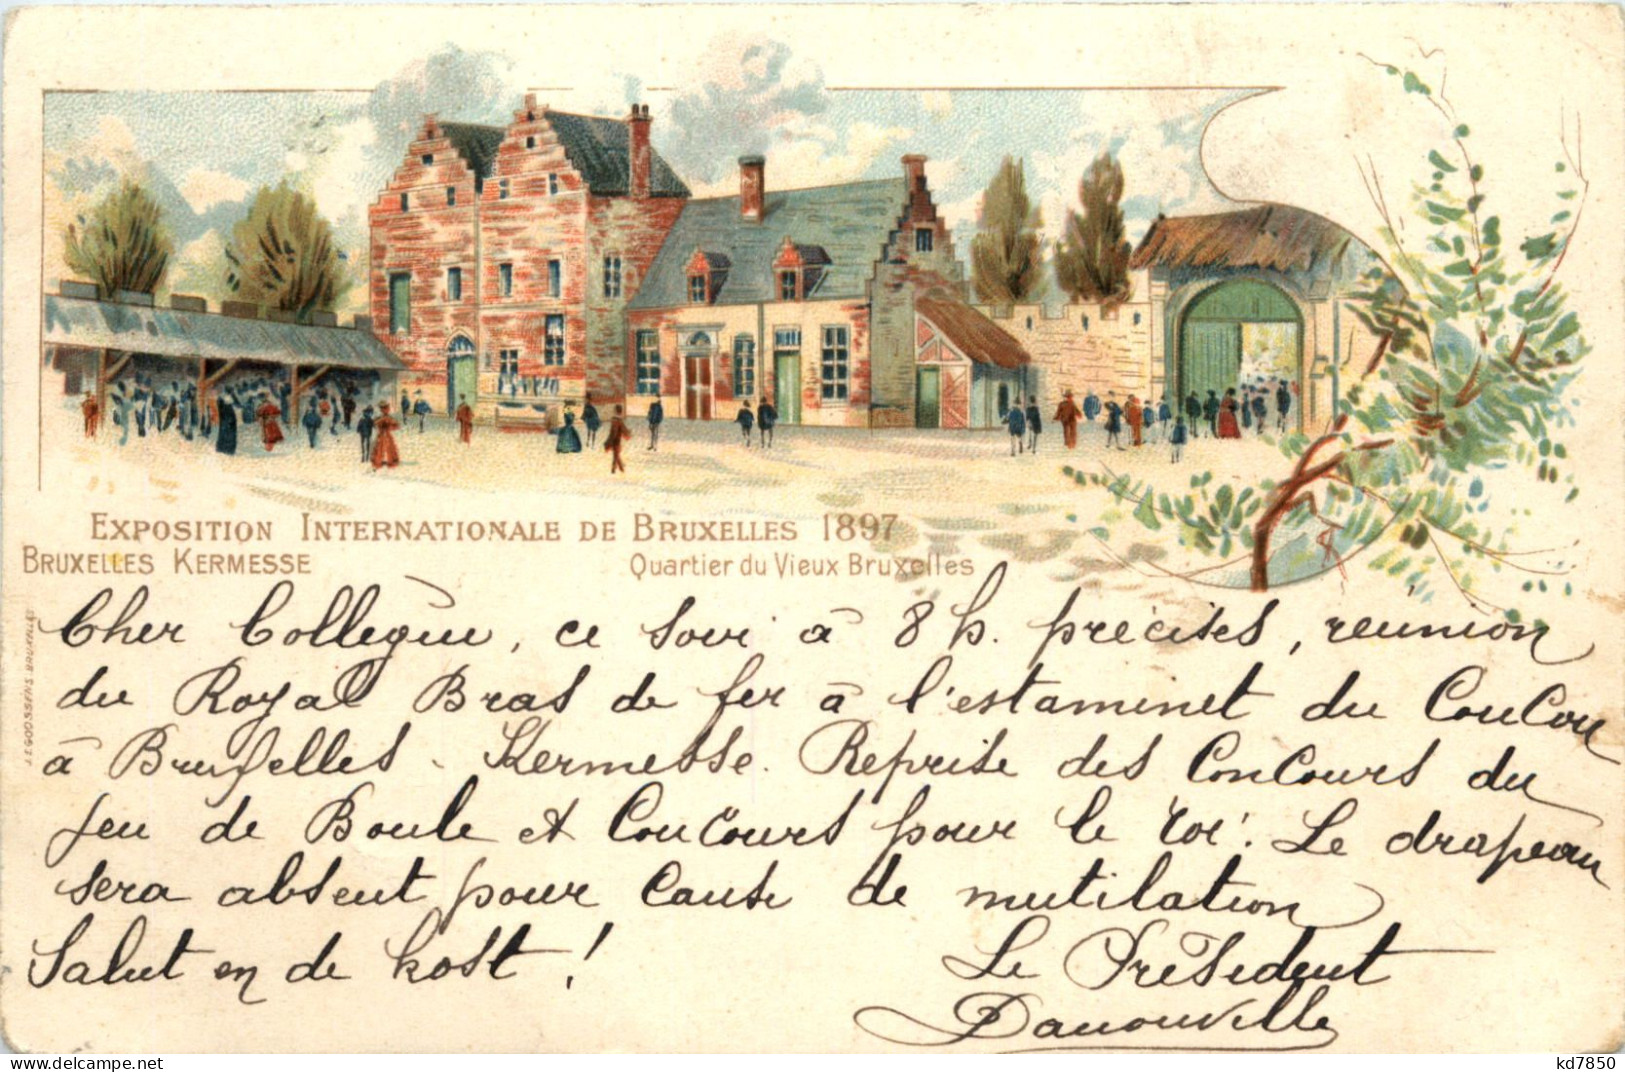 EXPOSITION INTERNATIONALE DE BRUXELLES 1897
BRUXELLES KERMESSE
Quartier du Vieux Bruxelles
J.E. GOOSSENS BRUXELLES
Cher Collègue, ce soir à 8 h. précises, réunion
du Royal Bras de fer à l'estaminet du CouCou
à Bruxelles - Kermesse. Reprise des ConCours du
jeu de Boule et ConCours pour le roi. Le drapeau
sera absent pour Cause de mutilation
Salut en de kost !
Le Président
kd7850